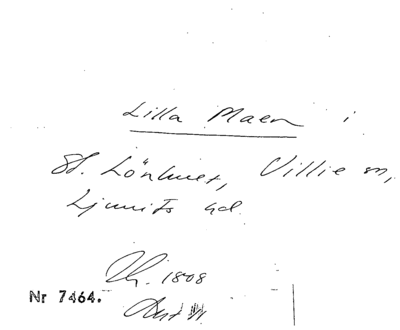 Lilla Maen i
St. Lönhult, Villie sn,
Ljunits hd.
1808
Nr 7464.